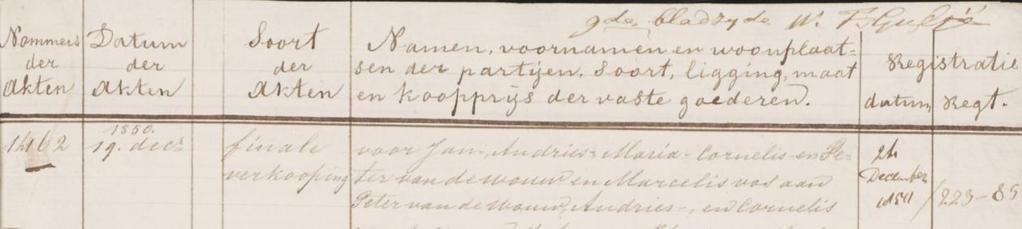 9de bladzyde W.
Nommers der Akten
Datum der Akten
Soort der Akten
Namen, voornamen en woonplaat-
sen der partijen. Soort, ligging, maat
en koopprijs der vaste goederen.
Registratie
datum Regt.
1462
1850.
19. decr
finale
verkooping
voor Jan-, Andries- Maria- Cornelis- en Pe-
ter van de Wouw en Marcelis vos aan
Peter van de Wouw, Andries-, en Cornelis
24
December
223-85